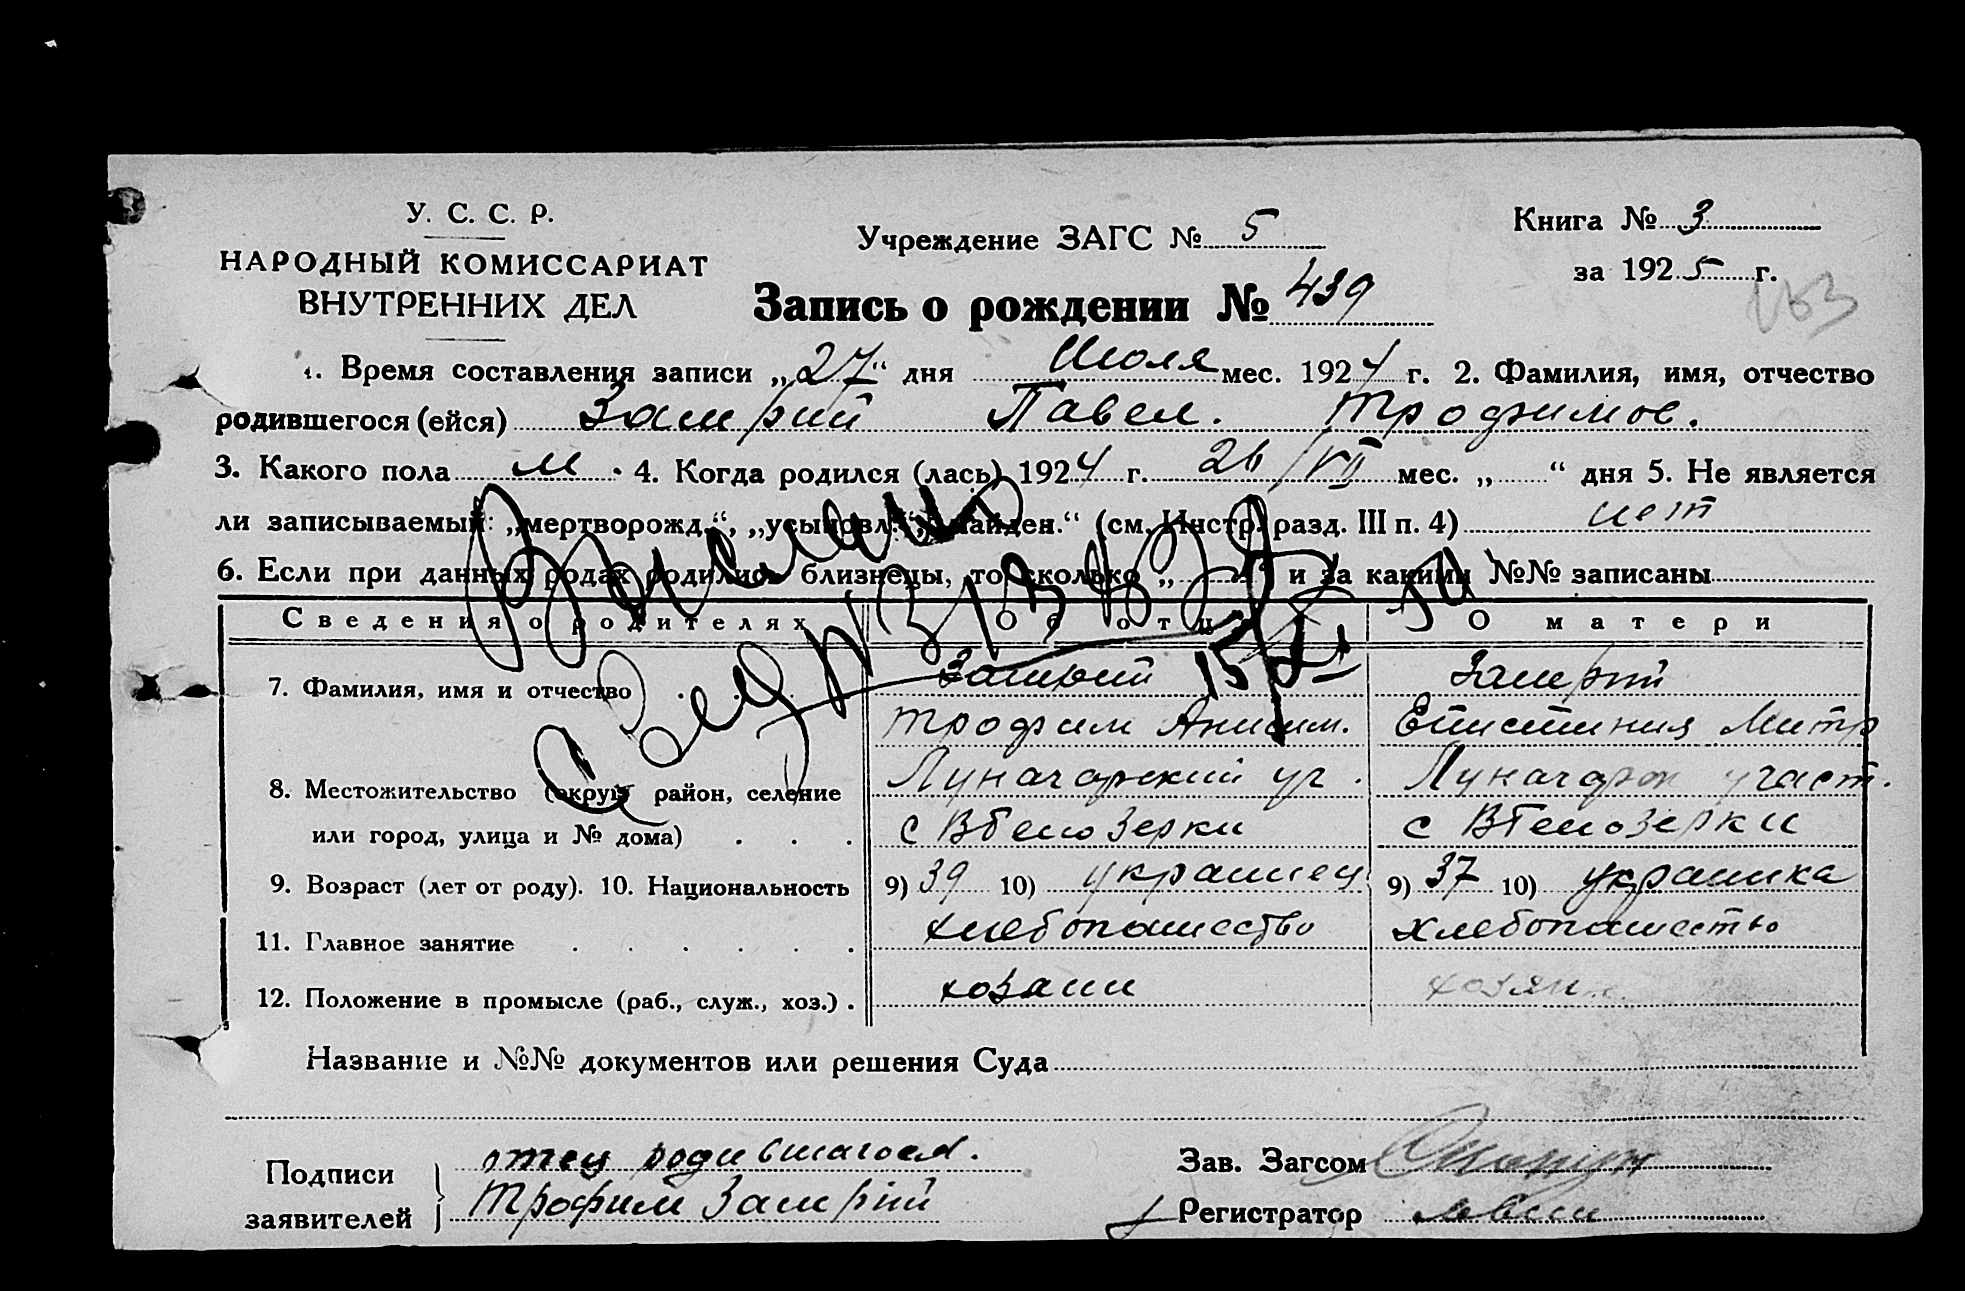 У. С. С. Р.
НАРОДНЫЙ КОМИССАРИАТ
ВНУТРЕННИХ ДЕЛ
Учреждение ЗАГС № 5
Книга № 3
за 1925 г.
Запись о рождении № 439
1. Время составления записи „27“ дня Июля мес. 1924 г. 2. Фамилия, имя, отчество
родившегося (ейся) Замрий Павел. Трофимов.
3. Какого пола м. 4. Когда родился (лась) 1924 г. 26/VII мес. „ “ дня 5. Не является
ли записываемый: „мертворожд.“, „усыновл.“, „найден.“ (см. Инстр. разд. III п. 4) нет
6. Если при данных родах родились близнецы, то сколько „ “ и за какими №№ записаны
Сведения о родителях Об отце О матери
7. Фамилия, имя и отчество Замрий Замрий
Трофим Анисим. Епистиния Митр
8. Местожительство (округ, район, селение Луначарский уч. Луначарск участ.
или город, улица и № дома) с ВБелозерки с ВБелозерки
9. Возраст (лет от роду). 10. Национальность 9) 39 10) украинец 9) 37 10) украинка
11. Главное занятие хлебопашество хлебопашество
12. Положение в промысле (раб., служ., хоз.) хозаин хозяин
Название и №№ документов или решения Суда
Подписи
заявителей
отец родившагося.
Трофим Замрій
Зав. Загсом
Регистратор